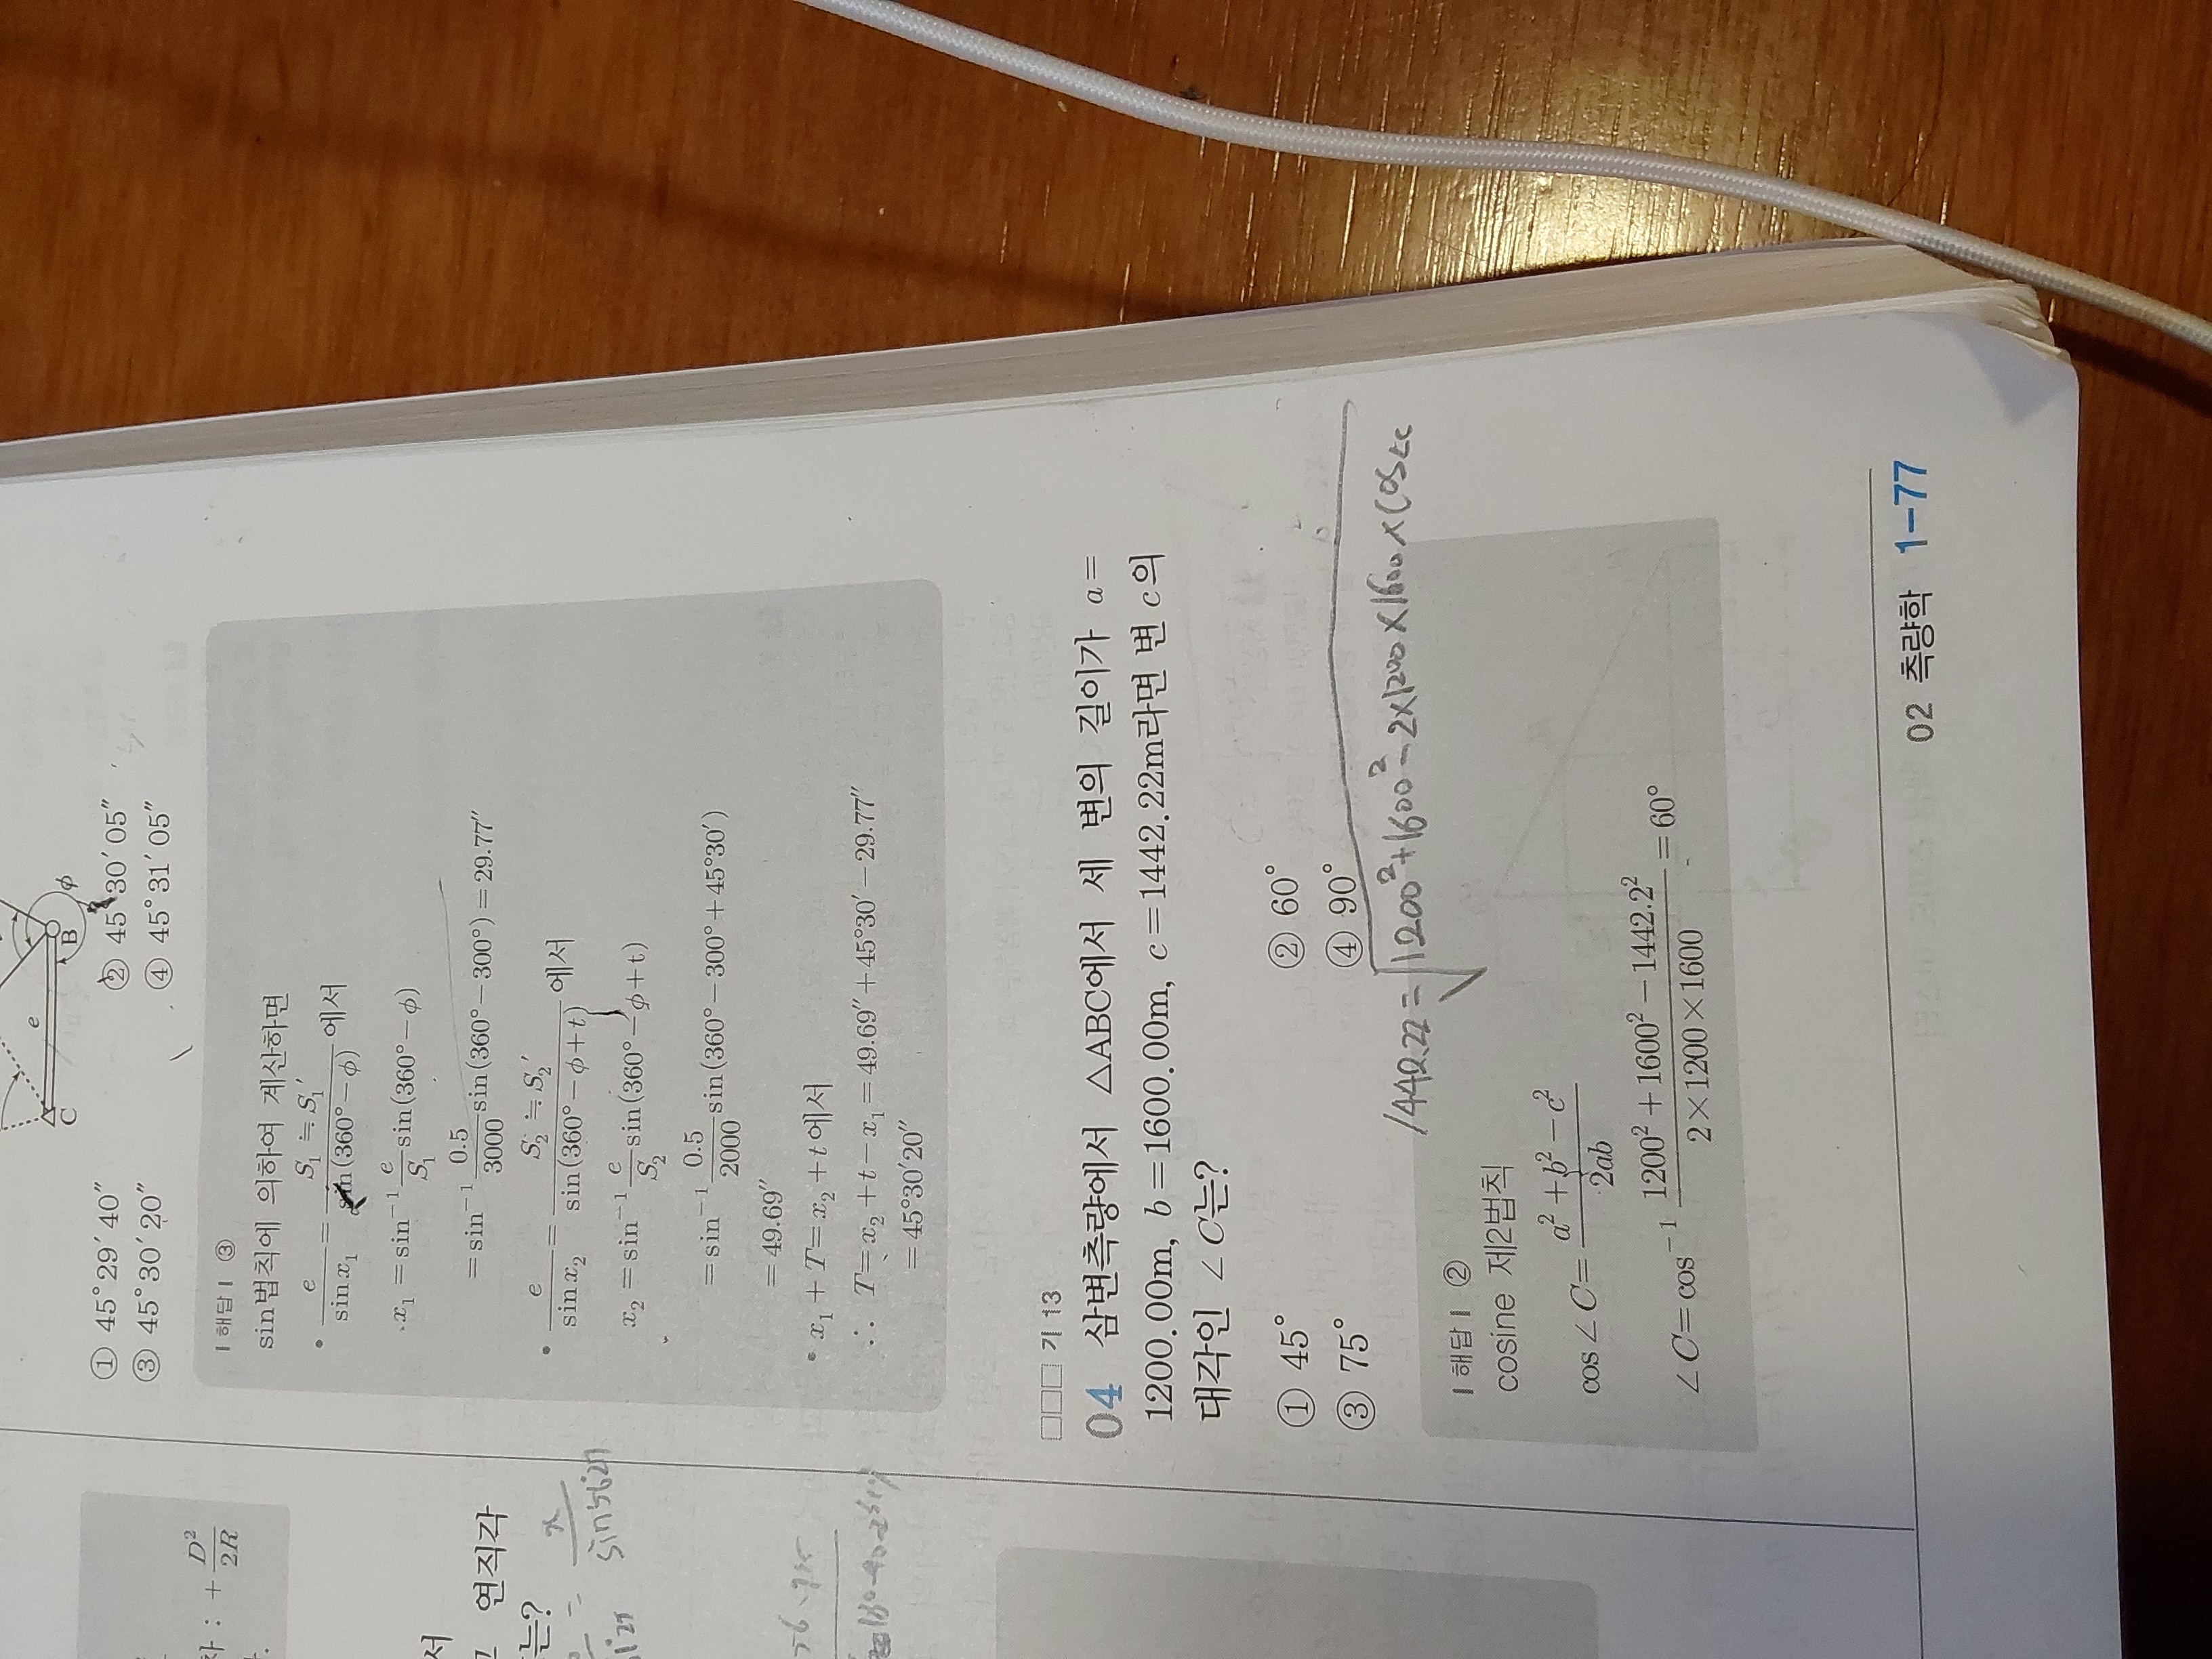 차 : + D²/2R
서
연직각
는?
C
e
B
φ
① 45°29′40″ ② 45°30′05″
③ 45°30′20″ ④ 45°31′05″
| 해답 | ③
sin법칙에 의하여 계산하면
• e/sinx₁ = S₁≒S₁′/sin(360°−φ) 에서
x₁ = sin⁻¹ e/S₁ sin(360°−φ)
= sin⁻¹ 0.5/3000 sin(360°−300°) = 29.77″
• e/sinx₂ = S₂≒S₂′/sin(360°−φ+t) 에서
x₂ = sin⁻¹ e/S₂ sin(360°−φ+t)
= sin⁻¹ 0.5/2000 sin(360°−300°+45°30′)
= 49.69″
• x₁+T=x₂+t에서
∴ T=x₂+t−x₁=49.69″+45°30′−29.77″
=45°30′20″
기 13
04 삼변측량에서 △ABC에서 세 변의 길이가 a=
1200.00m, b=1600.00m, c=1442.22m라면 변 c의
대각인 ∠C는?
① 45° ② 60°
③ 75° ④ 90°
1442.22=√1200²+1600²−2×1200×1600×cosx
| 해답 | ②
cosine 제2법칙
cos∠C= a²+b²−c²/2ab
∠C=cos⁻¹ 1200²+1600²−1442.2²/2×1200×1600 =60°
02 측량학 1-77